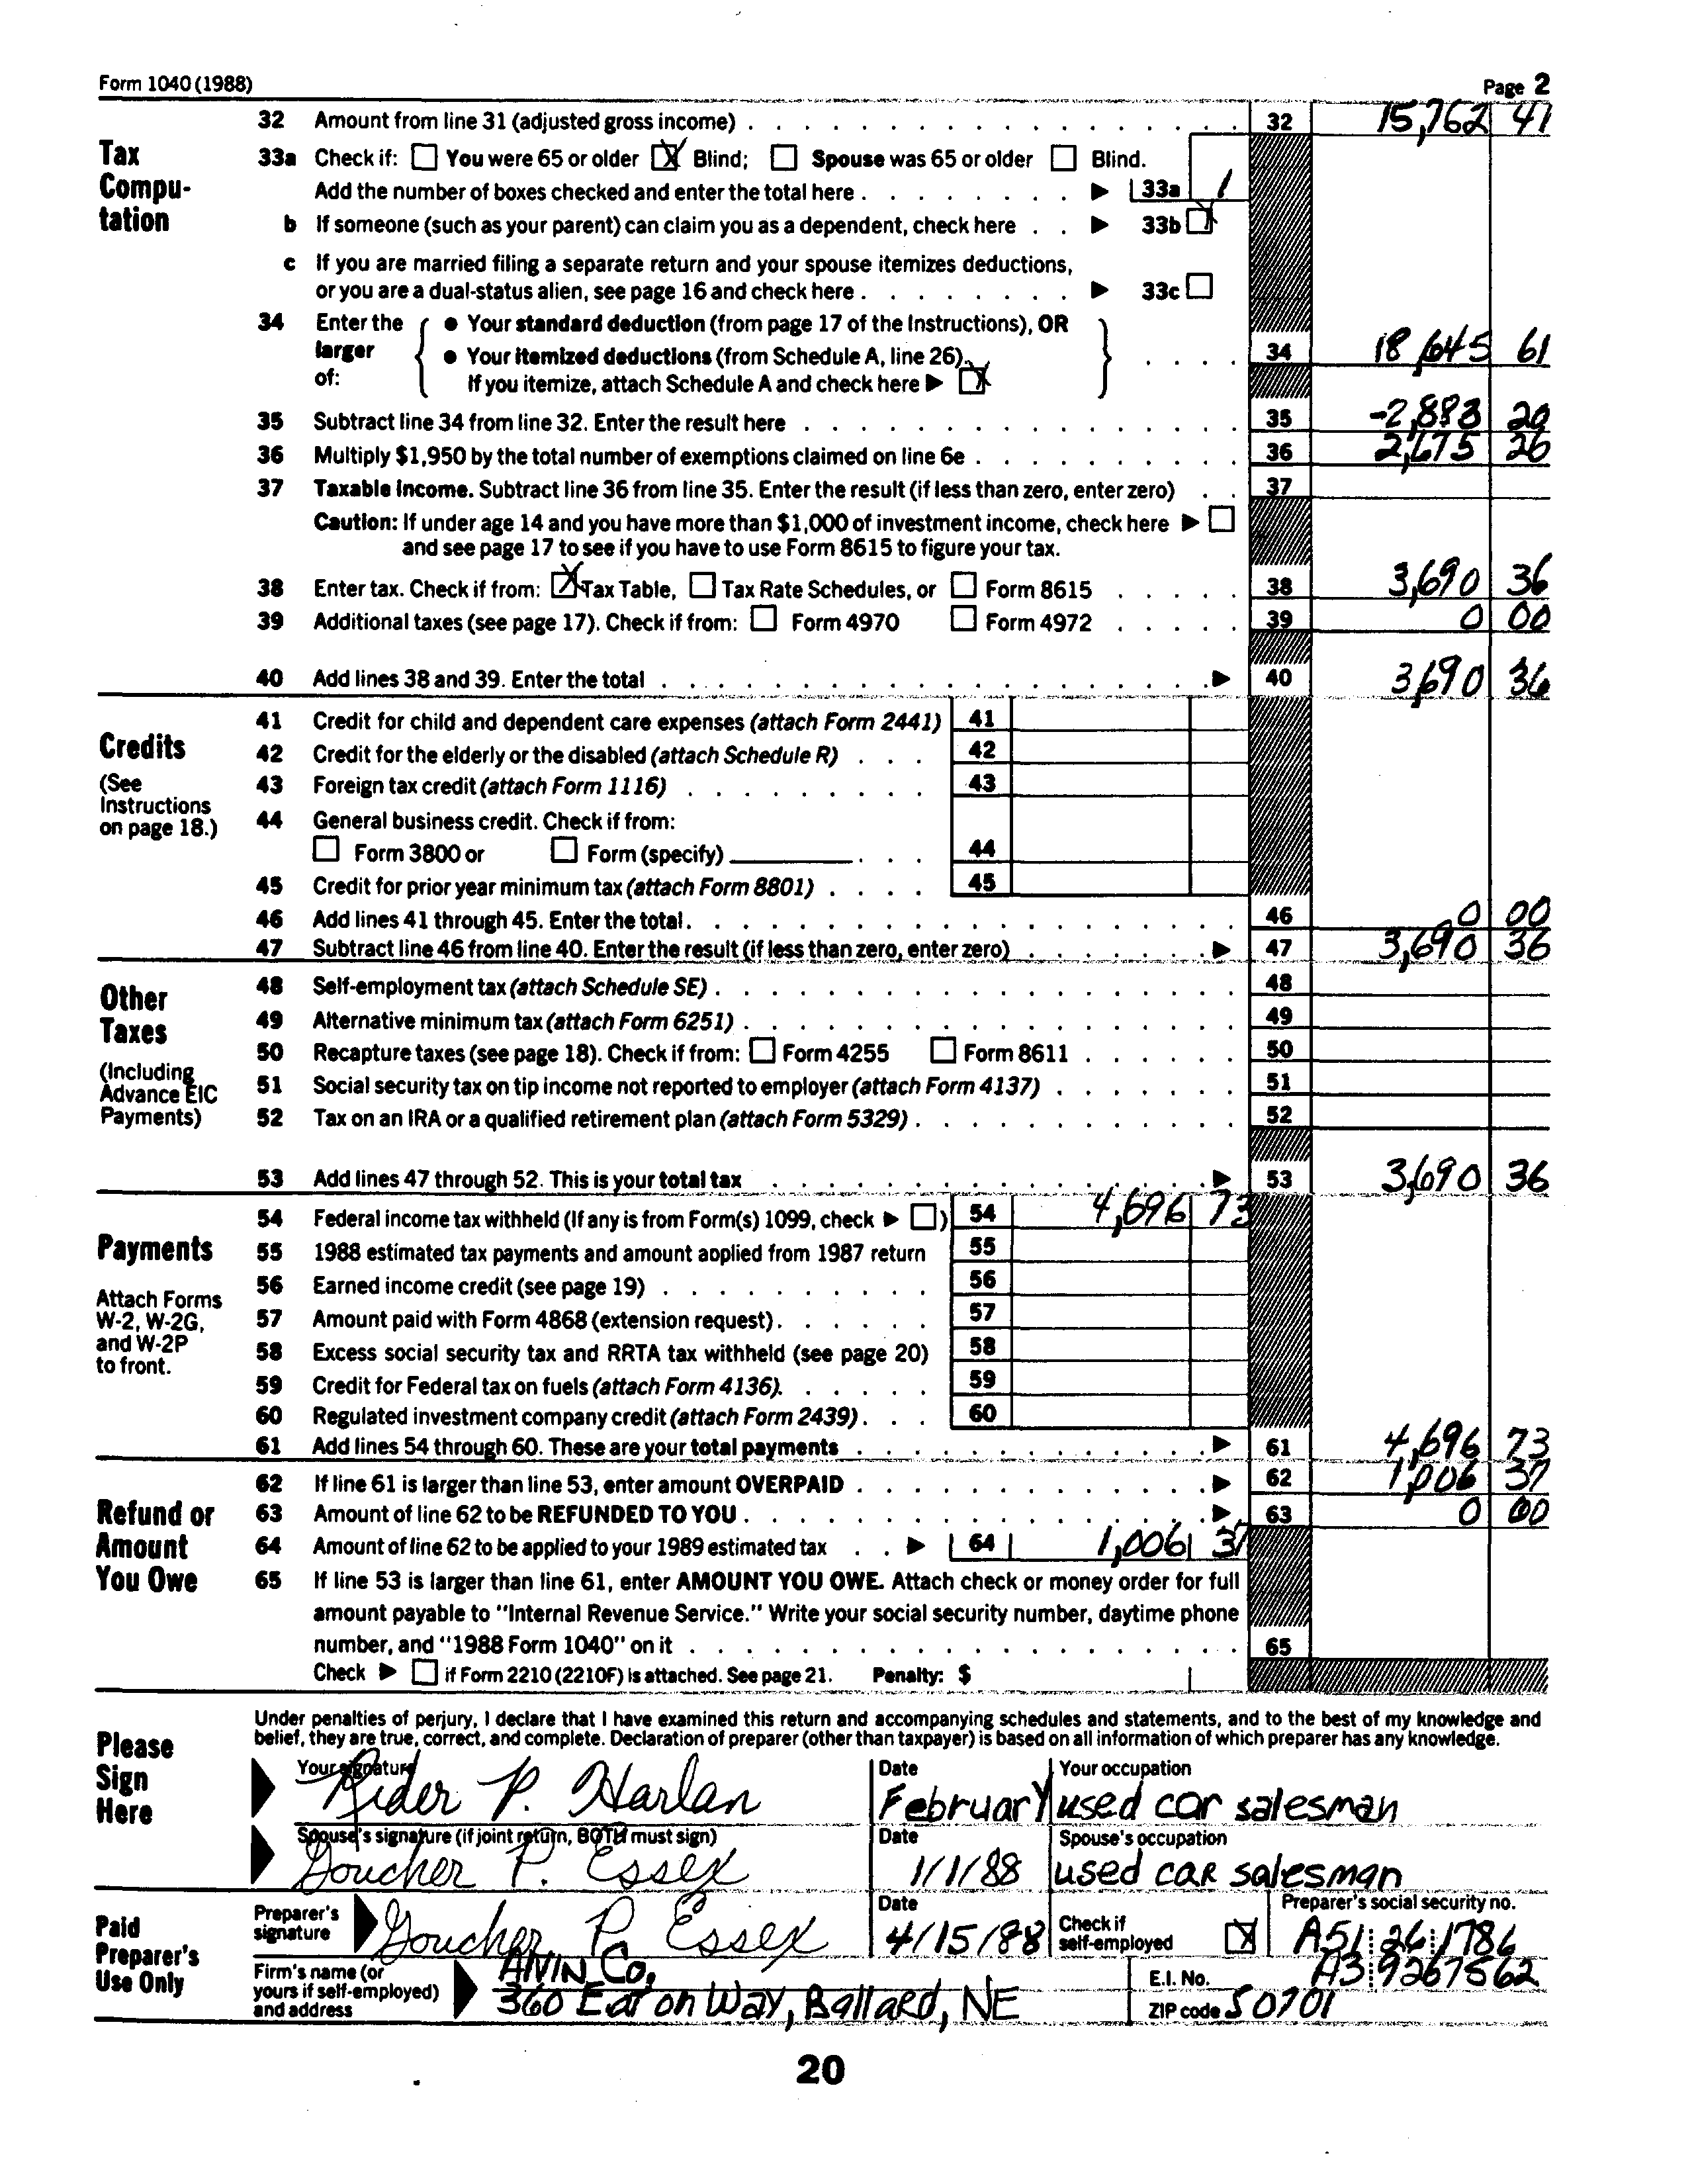 Form 1040 (1988) Page 2
Tax Compu-tation
32 Amount from line 31 (adjusted gross income) 32 15,762 41
33a Check if: You were 65 or older X Blind; Spouse was 65 or older Blind.
Add the number of boxes checked and enter the total here 33a 1
b If someone (such as your parent) can claim you as a dependent, check here 33b X
c If you are married filing a separate return and your spouse itemizes deductions,
or you are a dual-status alien, see page 16 and check here 33c
34 Enter the larger of: • Your standard deduction (from page 17 of the Instructions), OR
• Your itemized deductions (from Schedule A, line 26). 34 18,645 61
If you itemize, attach Schedule A and check here X
35 Subtract line 34 from line 32. Enter the result here 35 -2,883 20
36 Multiply $1,950 by the total number of exemptions claimed on line 6e 36 26
37 Taxable Income. Subtract line 36 from line 35. Enter the result (if less than zero, enter zero) 37
Caution: If under age 14 and you have more than $1,000 of investment income, check here
and see page 17 to see if you have to use Form 8615 to figure your tax.
38 Enter tax. Check if from: X Tax Table, Tax Rate Schedules, or Form 8615 38 3,690 36
39 Additional taxes (see page 17). Check if from: Form 4970 Form 4972 39 0 00
40 Add lines 38 and 39. Enter the total 40 3,690 36
Credits
(See Instructions on page 18.)
41 Credit for child and dependent care expenses (attach Form 2441) 41
42 Credit for the elderly or the disabled (attach Schedule R) 42
43 Foreign tax credit (attach Form 1116) 43
44 General business credit. Check if from:
Form 3800 or Form (specify) 44
45 Credit for prior year minimum tax (attach Form 8801) 45
46 Add lines 41 through 45. Enter the total. 46 0 00
47 Subtract line 46 from line 40. Enter the result (if less than zero, enter zero) 47 3,690 36
Other Taxes
(Including Advance EIC Payments)
48 Self-employment tax (attach Schedule SE) 48
49 Alternative minimum tax (attach Form 6251) 49
50 Recapture taxes (see page 18). Check if from: Form 4255 Form 8611 50
51 Social security tax on tip income not reported to employer (attach Form 4137) 51
52 Tax on an IRA or a qualified retirement plan (attach Form 5329) 52
53 Add lines 47 through 52. This is your total tax 53 3,690 36
Payments
Attach Forms W-2, W-2G, and W-2P to front.
54 Federal income tax withheld (If any is from Form(s) 1099, check ) 54 4,696 73
55 1988 estimated tax payments and amount applied from 1987 return 55
56 Earned income credit (see page 19) 56
57 Amount paid with Form 4868 (extension request) 57
58 Excess social security tax and RRTA tax withheld (see page 20) 58
59 Credit for Federal tax on fuels (attach Form 4136). 59
60 Regulated investment company credit (attach Form 2439) 60
61 Add lines 54 through 60. These are your total payments 61 4,696 73
Refund or Amount You Owe
62 If line 61 is larger than line 53, enter amount OVERPAID 62 1,006 37
63 Amount of line 62 to be REFUNDED TO YOU 63 0 00
64 Amount of line 62 to be applied to your 1989 estimated tax 64 1,006 37
65 If line 53 is larger than line 61, enter AMOUNT YOU OWE. Attach check or money order for full
amount payable to "Internal Revenue Service." Write your social security number, daytime phone
number, and "1988 Form 1040" on it 65
Check if Form 2210 (2210F) is attached. See page 21. Penalty: $
Please Sign Here
Under penalties of perjury, I declare that I have examined this return and accompanying schedules and statements, and to the best of my knowledge and
belief, they are true, correct, and complete. Declaration of preparer (other than taxpayer) is based on all information of which preparer has any knowledge.
Your signature Date Your occupation
Rider P. Harlan February used car salesman
Spouse's signature (if joint return, BOTH must sign) Date Spouse's occupation
Goucher P. Essex 1/1/88 used car salesman
Paid Preparer's Use Only
Preparer's signature Goucher P. Essex Date 4/15/88 Check if self-employed X Preparer's social security no. A51 26 1786
Firm's name (or yours if self-employed) and address Alvin Co. E.I. No. A3 9267562
360 Eaton Way, Ballard, NE ZIP code 50701
20